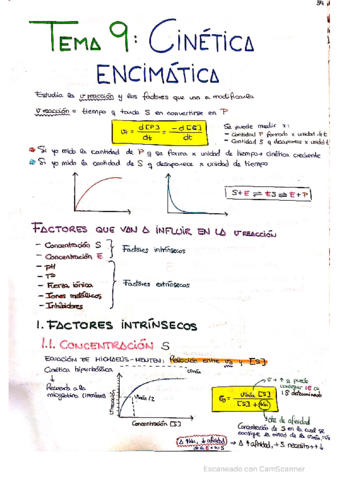 TEMA 9: CINÉTICA
ENCIMÁTICA
Estudia la v reacción y los factores que van a modificarla
v reacción = tiempo q tarda S en convertirse en P
v = d[P]/dt = -d[S]/dt
Se puede medir x:
- Cantidad P formado x unidad de t
- Cantidad S q desaparece x unidad t
Si yo mido la cantidad de P q se forma x unidad de tiempo → Cinética creciente
Si yo mido la cantidad de S q desaparece x unidad de tiempo
S+E ⇌ ES ⇌ E+P
FACTORES QUE VAN A INFLUIR EN LA V REACCIÓN
- Concentración S
- Concentración E
Factores intrínsecos
- pH
- Tª
- Fuerza iónica
- Iones metálicos
- Inhibidores
Factores extrínsecos
1. FACTORES INTRÍNSECOS
1.1. CONCENTRACIÓN S
ECUACIÓN DE MICHAELIS-MENTEN: Relación entre v y [S]
Cinética hiperbólica
Recuerda a la
mioglobina
Vmáx
Vmáx/2
Concentración [S]
Vmáx [S]
[S] + Km
cte de afinidad
Concentración de S en la cual se
Δ Km, ↓ afinidad
→ Δ afinidad, + S necesito
Escaneado con CamScanner